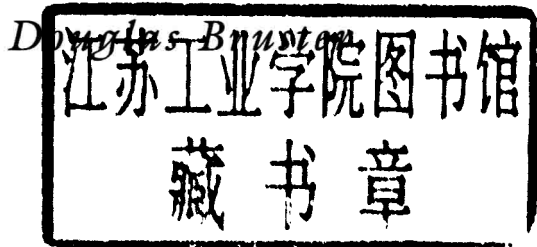 Douglas Bruster
江苏工业学院图书馆
藏书章